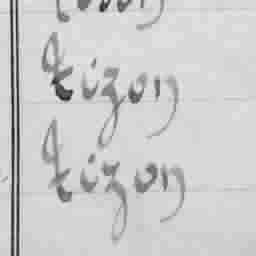 tizon
tizon